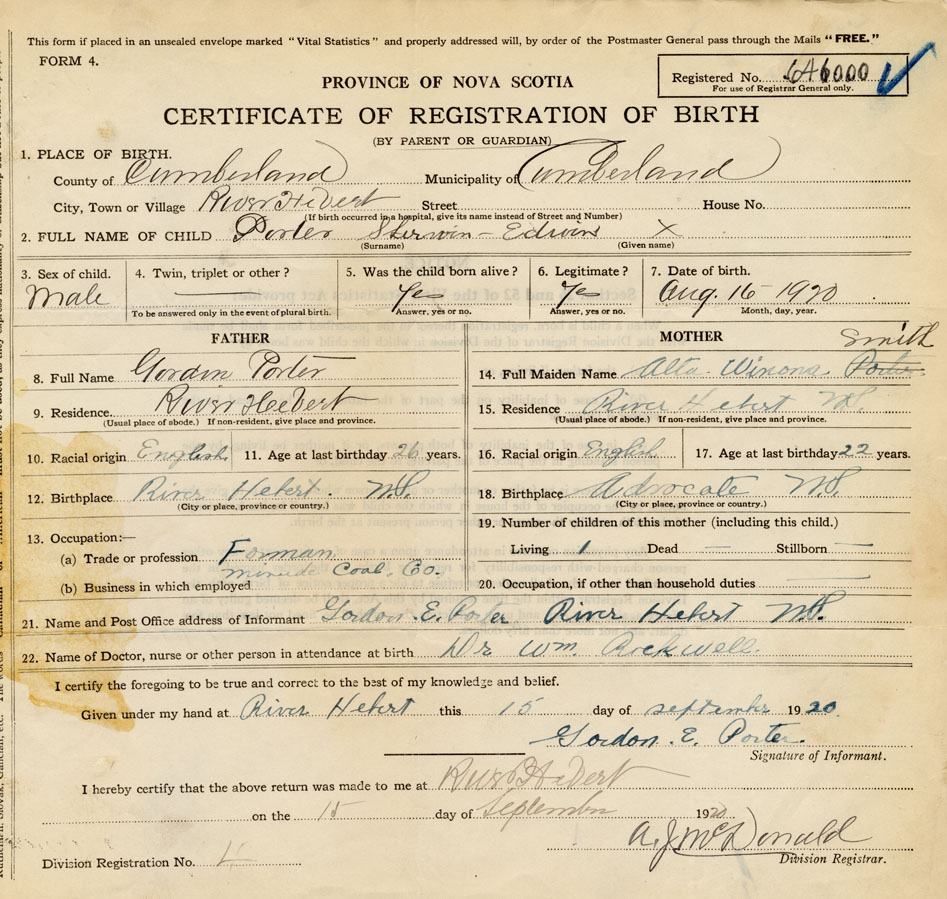 This form if placed in an unsealed envelope marked "Vital Statistics" and properly addressed will, by order of the Postmaster General pass through the Mails "FREE."
FORM 4.
PROVINCE OF NOVA SCOTIA
Registered No. 646000
For use of Registrar General only.
CERTIFICATE OF REGISTRATION OF BIRTH
(BY PARENT OR GUARDIAN)
1. PLACE OF BIRTH.
County of Cumberland Municipality of Cumberland
City, Town or Village River Hebert Street House No.
(If birth occurred in a hospital, give its name instead of Street and Number)
2. FULL NAME OF CHILD Porter Sherwin-Edwin X
(Surname) (Given name)
3. Sex of child. 4. Twin, triplet or other? 5. Was the child born alive? 6. Legitimate? 7. Date of birth.
Male — Yes Yes Aug. 16 - 1920
To be answered only in the event of plural birth. Answer, yes or no. Answer, yes or no. Month, day, year.
FATHER
8. Full Name Gordon Porter
9. Residence. River Heebert
(Usual place of abode.) If non-resident, give place and province.
10. Racial origin English 11. Age at last birthday 26 years.
12. Birthplace River Hebert. N.S.
(City or place, province or country.)
13. Occupation:—
(a) Trade or profession Forman
(b) Business in which employed Coal. Co.
MOTHER
Smith
14. Full Maiden Name Alta Winona Porter
15. Residence River Hebert N.S.
(Usual place of abode.) If non-resident, give place and province.
16. Racial origin English 17. Age at last birthday 22 years.
18. Birthplace Advocate N.S.
(City or place, province or country.)
19. Number of children of this mother (including this child.)
Living 1 Dead — Stillborn —
20. Occupation, if other than household duties —
21. Name and Post Office address of Informant Gordon. E. Porter River Hebert N.S.
22. Name of Doctor, nurse or other person in attendance at birth Dr Wm. Rockwell.
I certify the foregoing to be true and correct to the best of my knowledge and belief.
Given under my hand at River Hebert this 15 day of september 1920.
Gordon. E. Porter.
Signature of Informant.
I hereby certify that the above return was made to me at River Hebert
on the 15 day of September 1920
A. J. McDonald
Division Registration No. 4 Division Registrar.